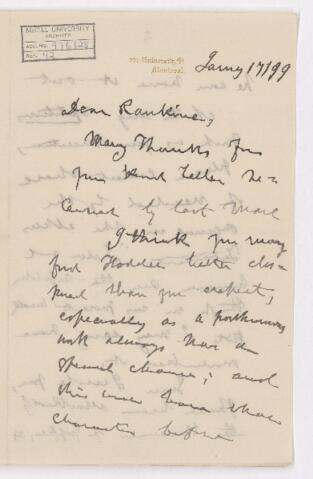 McGILL UNIVERSITY
ARCHIVES
ACC. NO.
REF.
University St
Montreal.
Jany 17/99
Dear Rankine,
Many Thanks for
your kind letter re-
ceived by last mail
I think you may
find Hodder better dis-
posed than you expect,
especially as a posthumous
work always has a
special chance; and
this will have that
character before